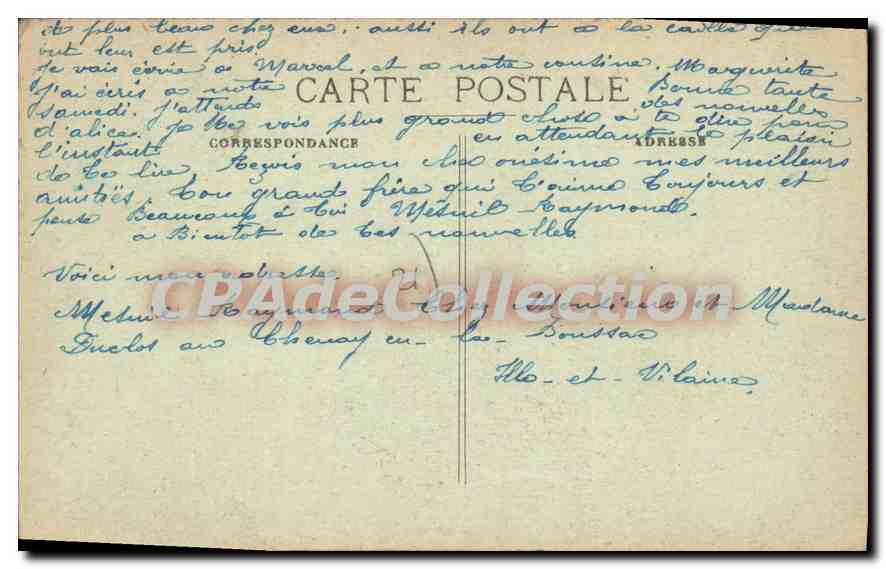 de plus beau chez eux. aussi ils ont a la
ont leur est pris.
Je vais écrire a Marcel, et a notre cousine. Marguerite
J'ai écris a notre Bonne tante
CARTE POSTALE
samedi. J'attends des nouvelles
d'alice. Je Ne vois plus grand chose a te dire pour
l'instant en attendant le plaisir
CORRESPONDANCE ADRESSE
de te lire, Reçois mon cher onésime mes meilleurs
amitiés. Ton grand frère qui t'aime toujours et
pense Beaucoup à toi Mesnil Raymond.
a Bientot de tes nouvelles
Voici mon adresse 21
CPAdeCollection.com
Mesnil Raymond Chez Monsieur et Madame
Duclos au Chenay en-la-Boussac
Ille-et-Vilaine.